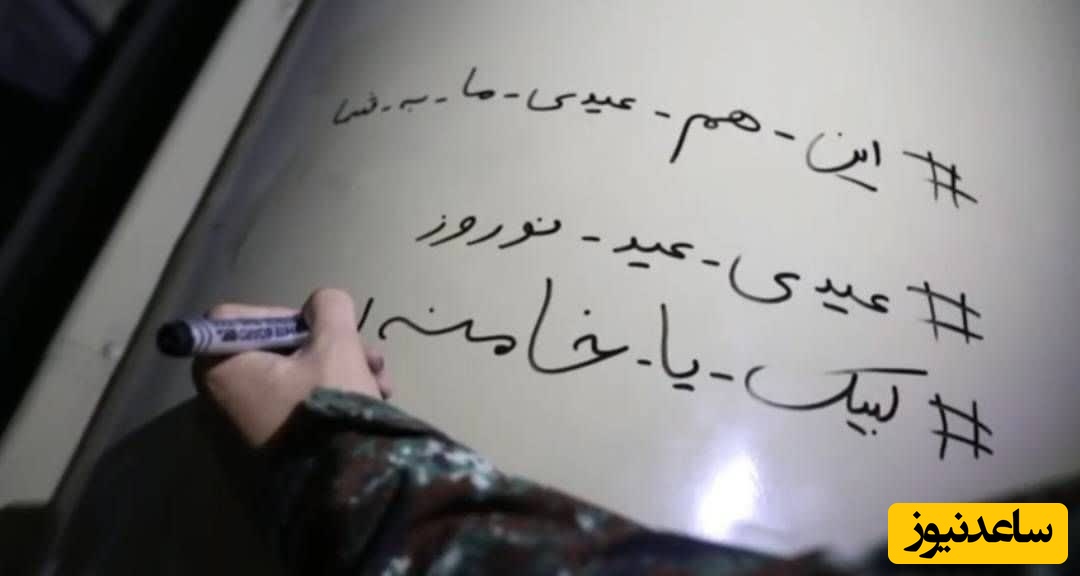 #این-هم-عیدی-ما-به-شما
#عیدی-عید-نوروز
#لبیک-یا-خامنه ا
ساعدنیوز